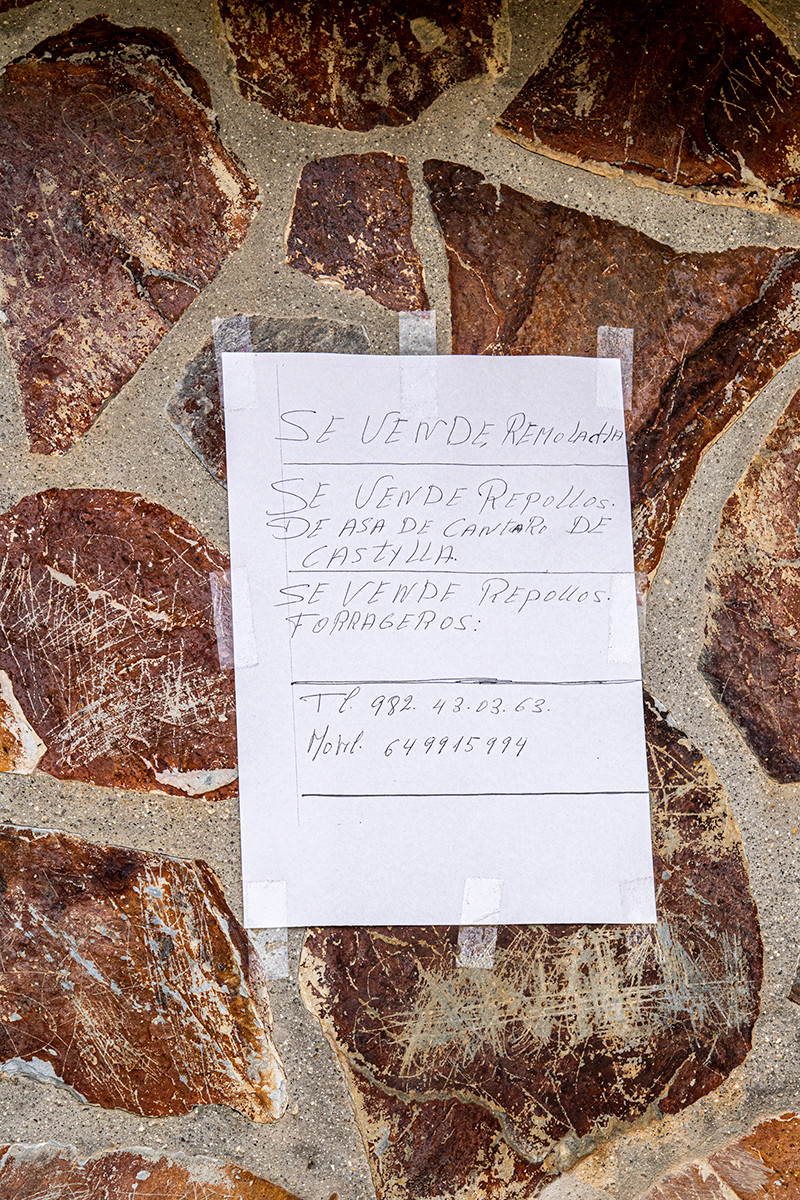 SE VENDE, REMOLACHA
SE VENDE REPOLLOS.
DE ASA DE CANTARO DE
CASTYLLA.
SE VENDE REPOLLOS.
FORRAGEROS:
Tl. 982. 43.03.63.
Movil. 649915994
XAVI